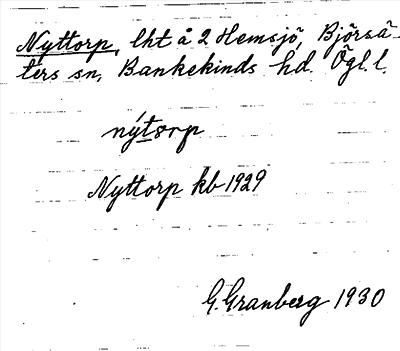 Nyttorp, lht å 2 Hemsjö, Björsä-
ters sn, Bankekinds hd. Ögl. l.
nýtorp
Nyttorp kb 1929
G. Granberg 1930